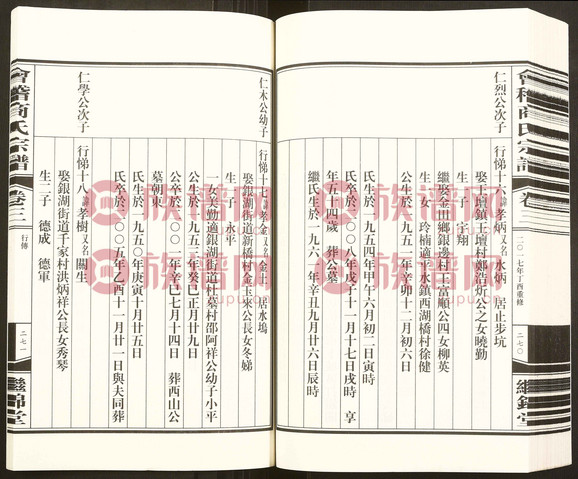 會稽商氏宗譜
卷三
二〇一七年丁酉重修
二七〇
繼錦堂
仁烈公次子
行悌十六諱孝炳又名水炳 居止步坑
娶王壇鎮王壇村鄭浩炘公之女曉勤
生一子 宇翔
繼娶金田鄉銀邊村王富順公四女柳英
生一女 玲楠適平水鎮西湖橋村徐健
公生於一九五一年辛卯十二月初六日
氏生於一九五四年甲午六月初二日寅時
氏卒於二〇〇八年戊子十一月十六日戌時 享
年五十四歲 葬公墓
繼氏生於一九六一年辛丑九月廿六日辰時
仁木公幼子
行悌十七諱孝金又名金土 居水塢
娶銀湖街道新橋村金玉來公長女冬娣
生一子 永平
一女美勤適銀湖街道杜墓村邵阿祥公幼子小平
公生於一九五三年癸巳正月廿九日
公卒於二〇〇一年辛巳七月十四日 葬西山公
墓朝東
氏生於一九五〇年庚寅十月廿五日
氏卒於二〇〇五年乙酉十一月廿一日與夫同葬
仁學公次子
行悌十八諱孝樹又名關生
娶銀湖街道千家村洪炳祥公長女秀琴
生二子 德成 德軍
會稽商氏宗譜
卷三
行傳
二七一
繼錦堂
族譜网
族譜网